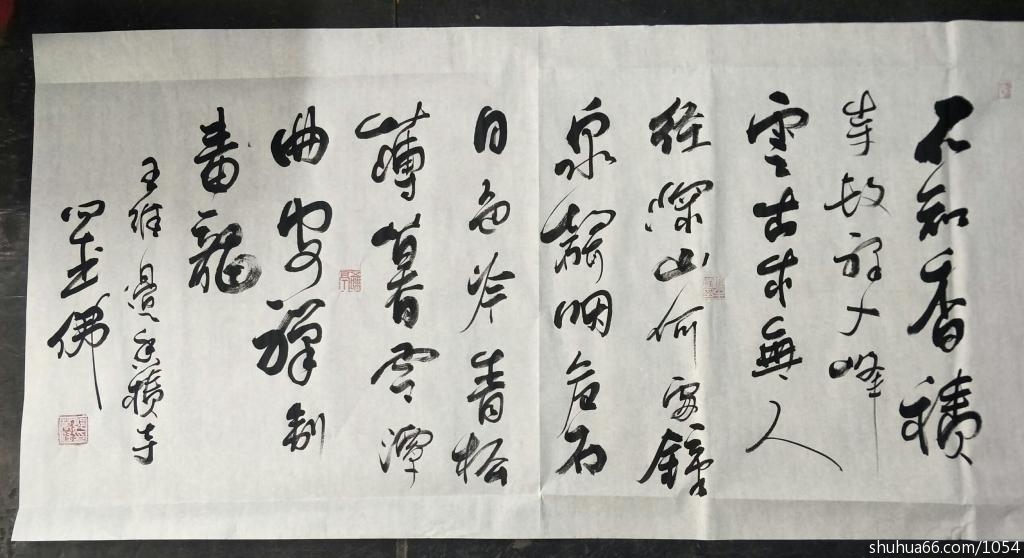 不知香積
寺數里入峰
雲古木無人
徑深山何處鐘
泉聲咽危石
日色冷青松
薄暮空潭
曲安禪制
毒龍
王維過香積寺
佛
shuhua66.com/1054